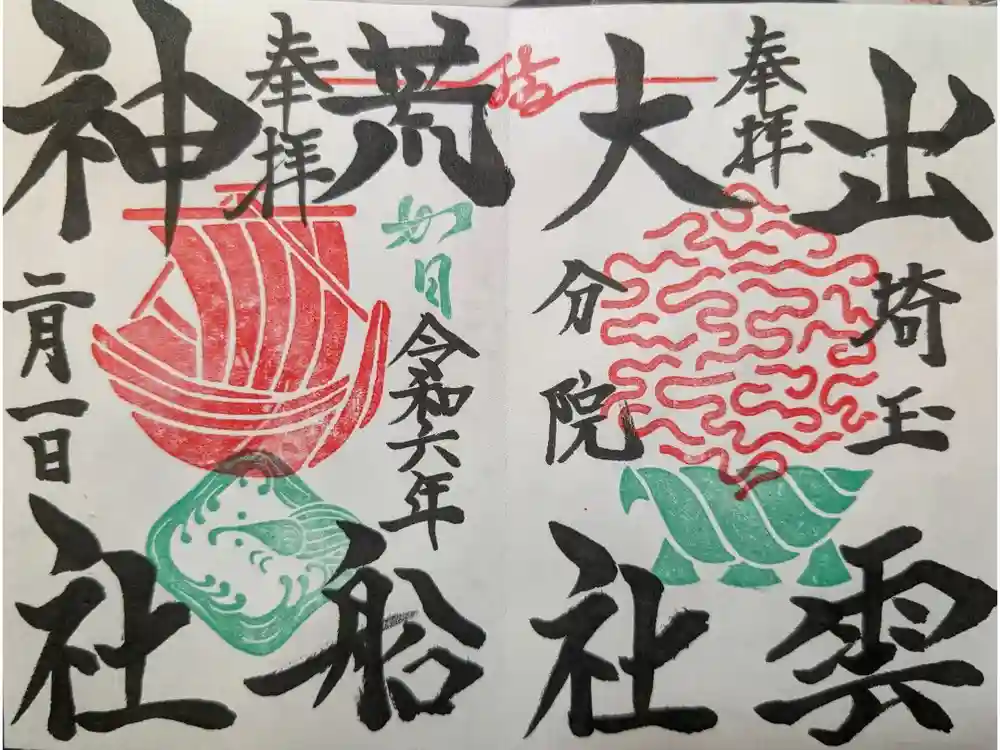 奉拝
出雲
大社
埼玉
分院
拾
奉拝
荒船
神社
令和六年
二月一日